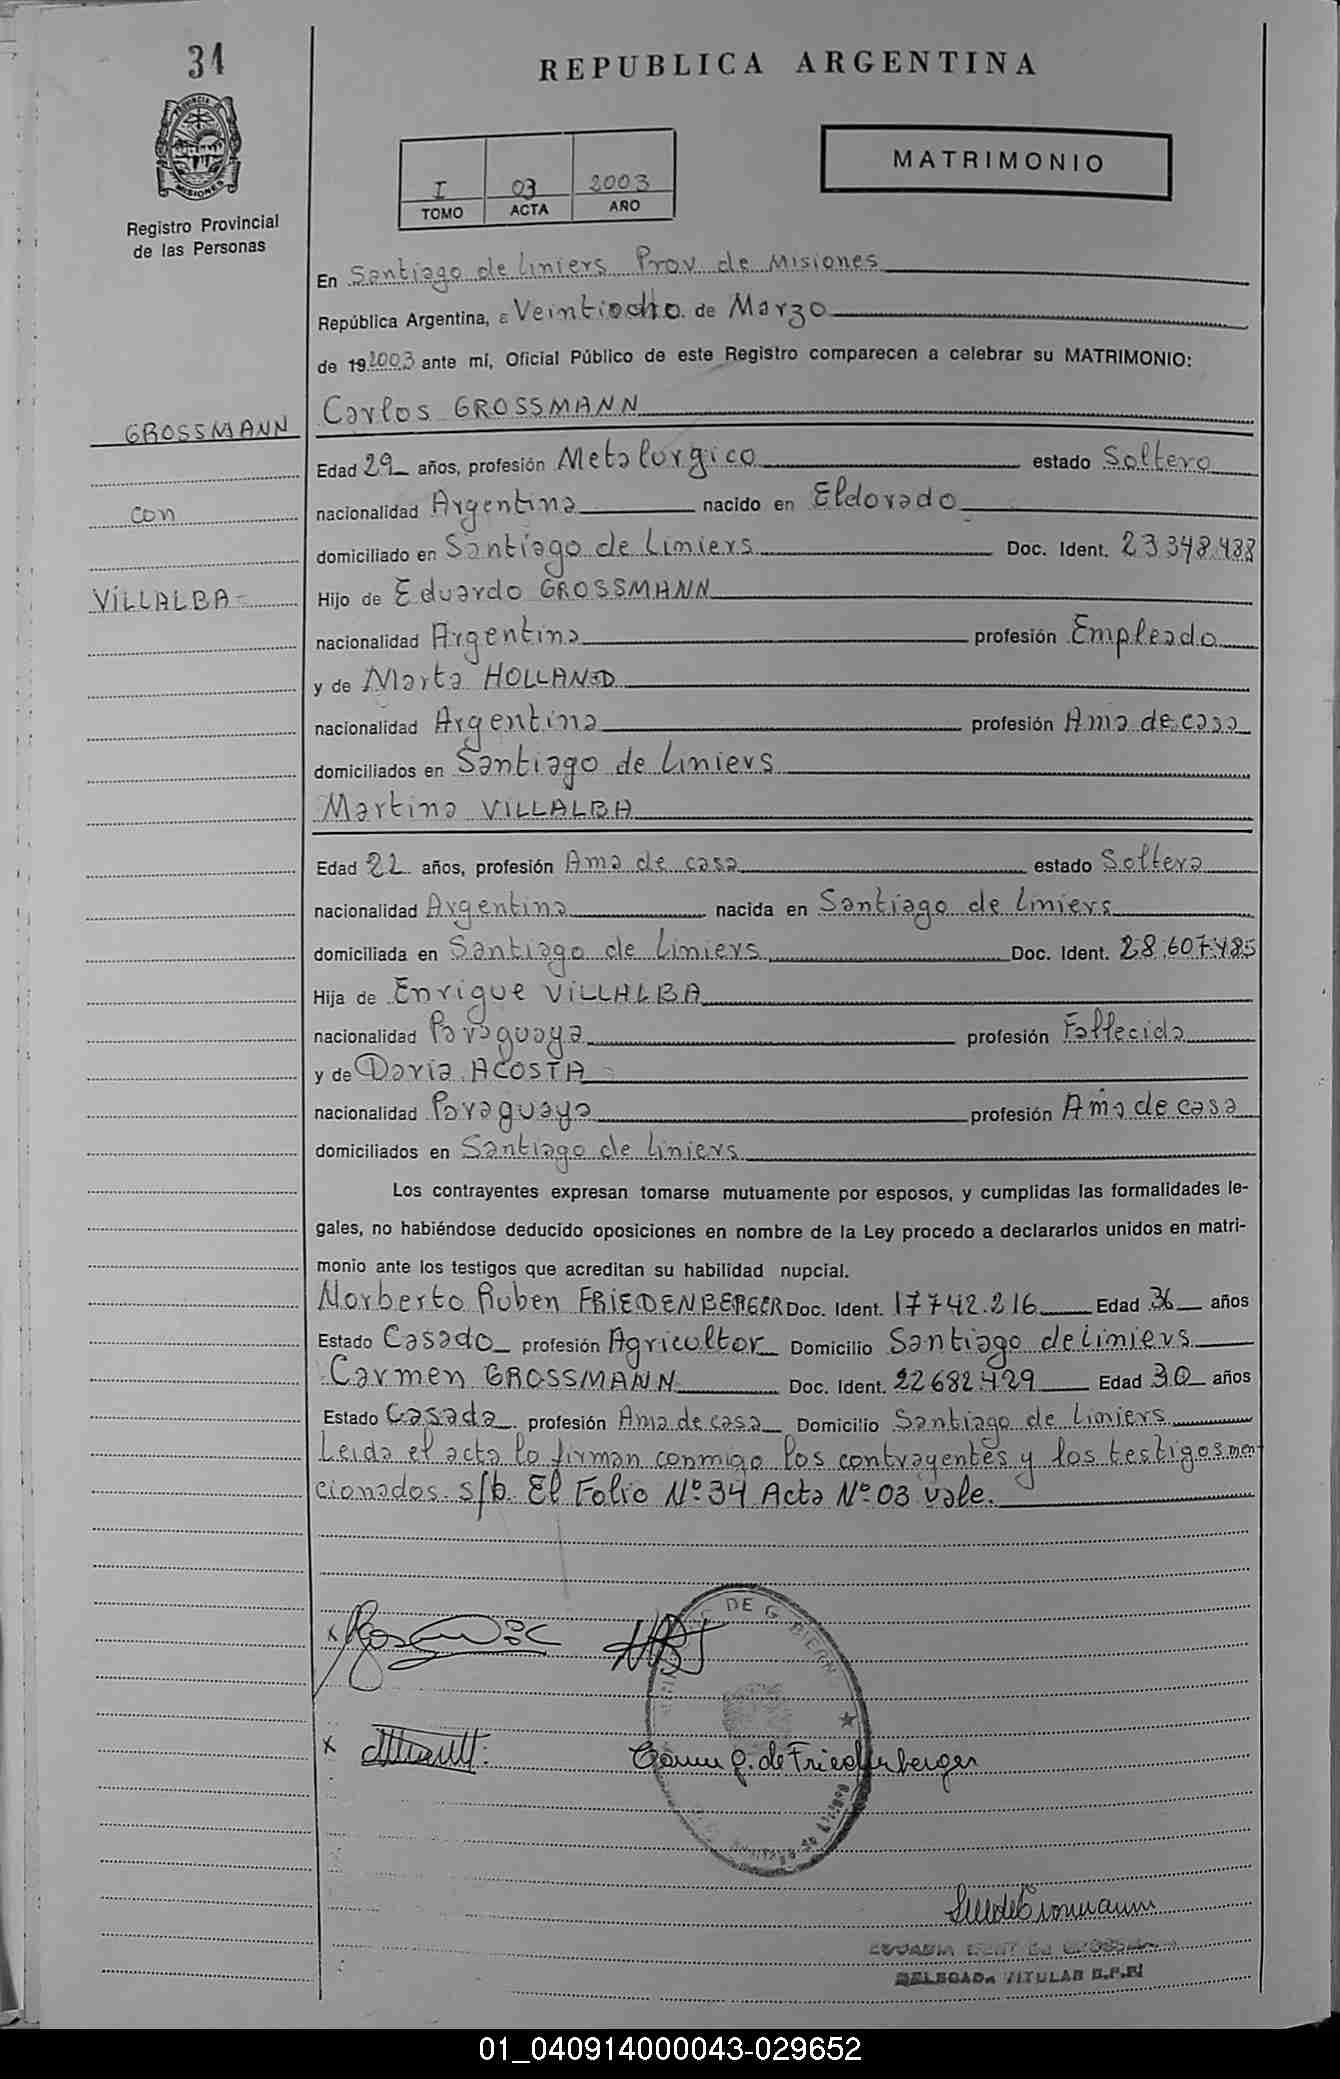 34
REPUBLICA ARGENTINA
MATRIMONIO
PROVINCIA DE
MISIONES
I 03 2003
TOMO ACTA AÑO
Registro Provincial
de las Personas
En Santiago de Liniers Prov. de Misiones
República Argentina, a Veintiocho de Marzo
de 192003 ante mí, Oficial Público de este Registro comparecen a celebrar su MATRIMONIO:
GROSSMANN
Carlos GROSSMANN
Edad 29 años, profesión Metalurgico estado Soltero
con
nacionalidad Argentina nacido en Eldorado
domiciliado en Santiago de Liniers Doc. Ident. 23348.488
VILLALBA=
Hijo de Eduardo GROSSMANN
nacionalidad Argentina profesión Empleado
y de Marta HOLLAND
nacionalidad Argentina profesión Ama de casa
domiciliados en Santiago de Liniers
Martina VILLALBA
Edad 22 años, profesión Ama de casa estado Soltera
nacionalidad Argentina nacida en Santiago de Liniers
domiciliada en Santiago de Liniers Doc. Ident. 28.607.485
Hija de Enrique VILLALBA
nacionalidad Paraguaya profesión Fallecida
y de Daria ACOSTA
nacionalidad Paraguaya profesión Ama de casa
domiciliados en Santiago de Liniers
Los contrayentes expresan tomarse mutuamente por esposos, y cumplidas las formalidades le-
gales, no habiéndose deducido oposiciones en nombre de la Ley procedo a declararlos unidos en matri-
monio ante los testigos que acreditan su habilidad nupcial.
Norberto Ruben FRIEDENBERGER Doc. Ident. 17742.216 Edad 36 años
Estado Casado profesión Agricultor Domicilio Santiago de Liniers
Carmen GROSSMANN Doc. Ident. 22682.429 Edad 30 años
Estado Casada profesión Ama de casa Domicilio Santiago de Liniers
Leida el acta lo firman conmigo los contrayentes y los testigos men
cionados s/b. El Folio Nº 34 Acta Nº 03 vale.
x
DE G BIERN
x
Carmen G. de Friedenberger
DELEGADA TITULAR R.P.P.
01_040914000043-029652